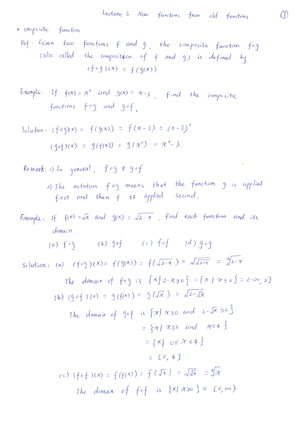 Lecture 6 New functions from old functions ①
* composite function
Def: Given two functions f and g, the composite function f∘g
(also called the composition of f and g) is defined by
(f∘g)(x) = f(g(x))
Example: If f(x) = x² and g(x) = x-3, find the composite
functions f∘g and g∘f.
Solution: (f∘g)(x) = f(g(x)) = f(x-3) = (x-3)²
(g∘f)(x) = g(f(x)) = g(x²) = x²-3
Remark: 1) In general, f∘g ≠ g∘f
2) The notation f∘g means that the function g is applied
first and then f is applied second.
Example: If f(x) = √x and g(x) = √(2-x), find each function and its
domain
(a) f∘g (b) g∘f (c) f∘f (d) g∘g
Solution: (a) (f∘g)(x) = f(g(x)) = f(√(2-x)) = √(√(2-x)) = ⁴√(2-x)
The domain of f∘g is {x|2-x≥0} = {x|x≤2} = (-∞, 2]
(b) (g∘f)(x) = g(f(x)) = g(√x) = √(2-√x)
The domain of g∘f is {x|x≥0 and 2-√x≥0}
= {x|x≥0 and x≤4}
= {x|0≤x≤4}
= [0, 4]
(c) (f∘f)(x) = f(f(x)) = f(√x) = √(√x) = ⁴√x
The domain of f∘f is {x|x≥0} = [0, ∞)